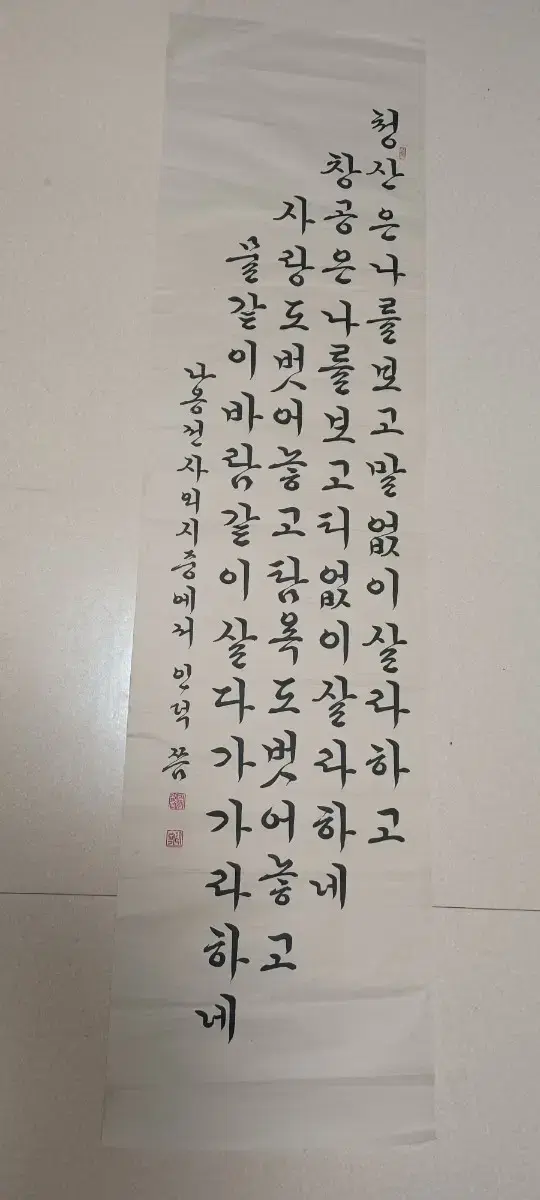 청산은나를보고말없이살라하고
창공은나를보고티없이살라하네
사랑도벗어놓고탐욕도벗어놓고
물같이바람같이살다가가라하네
나옹선사의지중에서 인덕 씀